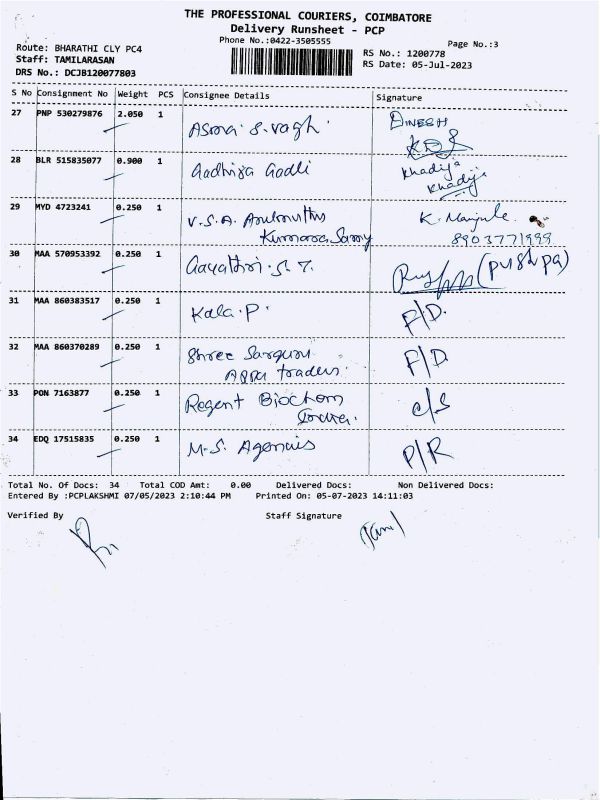 THE PROFESSIONAL COURIERS, COIMBATORE
Delivery Runsheet - PCP
Phone No.:0422-3505555
Page No.:3
Route: BHARATHI CLY PC4
RS No.: 1200778
Staff: TAMILARASAN
RS Date: 05-Jul-2023
DRS No.: DCJB120077803
S No Consignment No Weight PCS Consignee Details Signature
27 PNP 530279876 2.050 1 DINESH
28 BLR 515835077 0.900 1 Khadija
Khadija
29 MYD 4723241 0.250 1 V.S.A. K. Manjula
Kumara Samy 8903771999
30 MAA 570953392 0.250 1 Gayathri. S. T. (pushpa)
31 MAA 860383517 0.250 1 Kala. P. F/D.
32 MAA 860370289 0.250 1 Shree F/D
traders.
33 PON 7163877 0.250 1 Regent Biochem c/s
34 EDQ 17515835 0.250 1 M.S. P/R
Total No. Of Docs: 34 Total COD Amt: 0.00 Delivered Docs: Non Delivered Docs:
Entered By :PCPLAKSHMI 07/05/2023 2:10:44 PM Printed On: 05-07-2023 14:11:03
Verified By Staff Signature